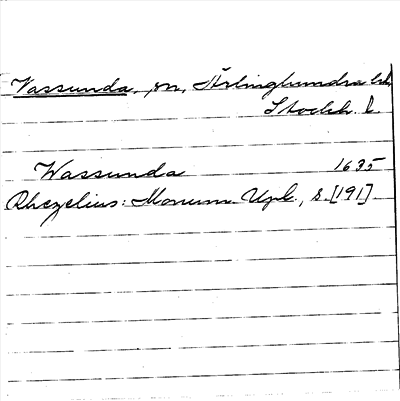 Vassunda, sn, Ärlinghundra hd,
Stockh. l.
Wassunda 1635
Rhezelius: Monum. Upl., s. [191]